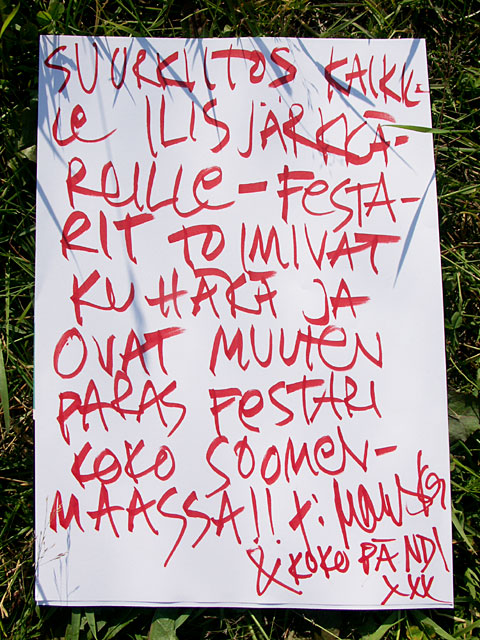 SUURKIITOS KAIKK-
Le ILISJÄRKKÄ-
REILLe - FeSTA-
RIT TOIMIVAT
KU HÄKÄ JA
OVAT MUUTEN
PARAS FESTARI
KOKO SOOMEN-
MAASSA!! t:
& KOKO PÄNDI
XXX